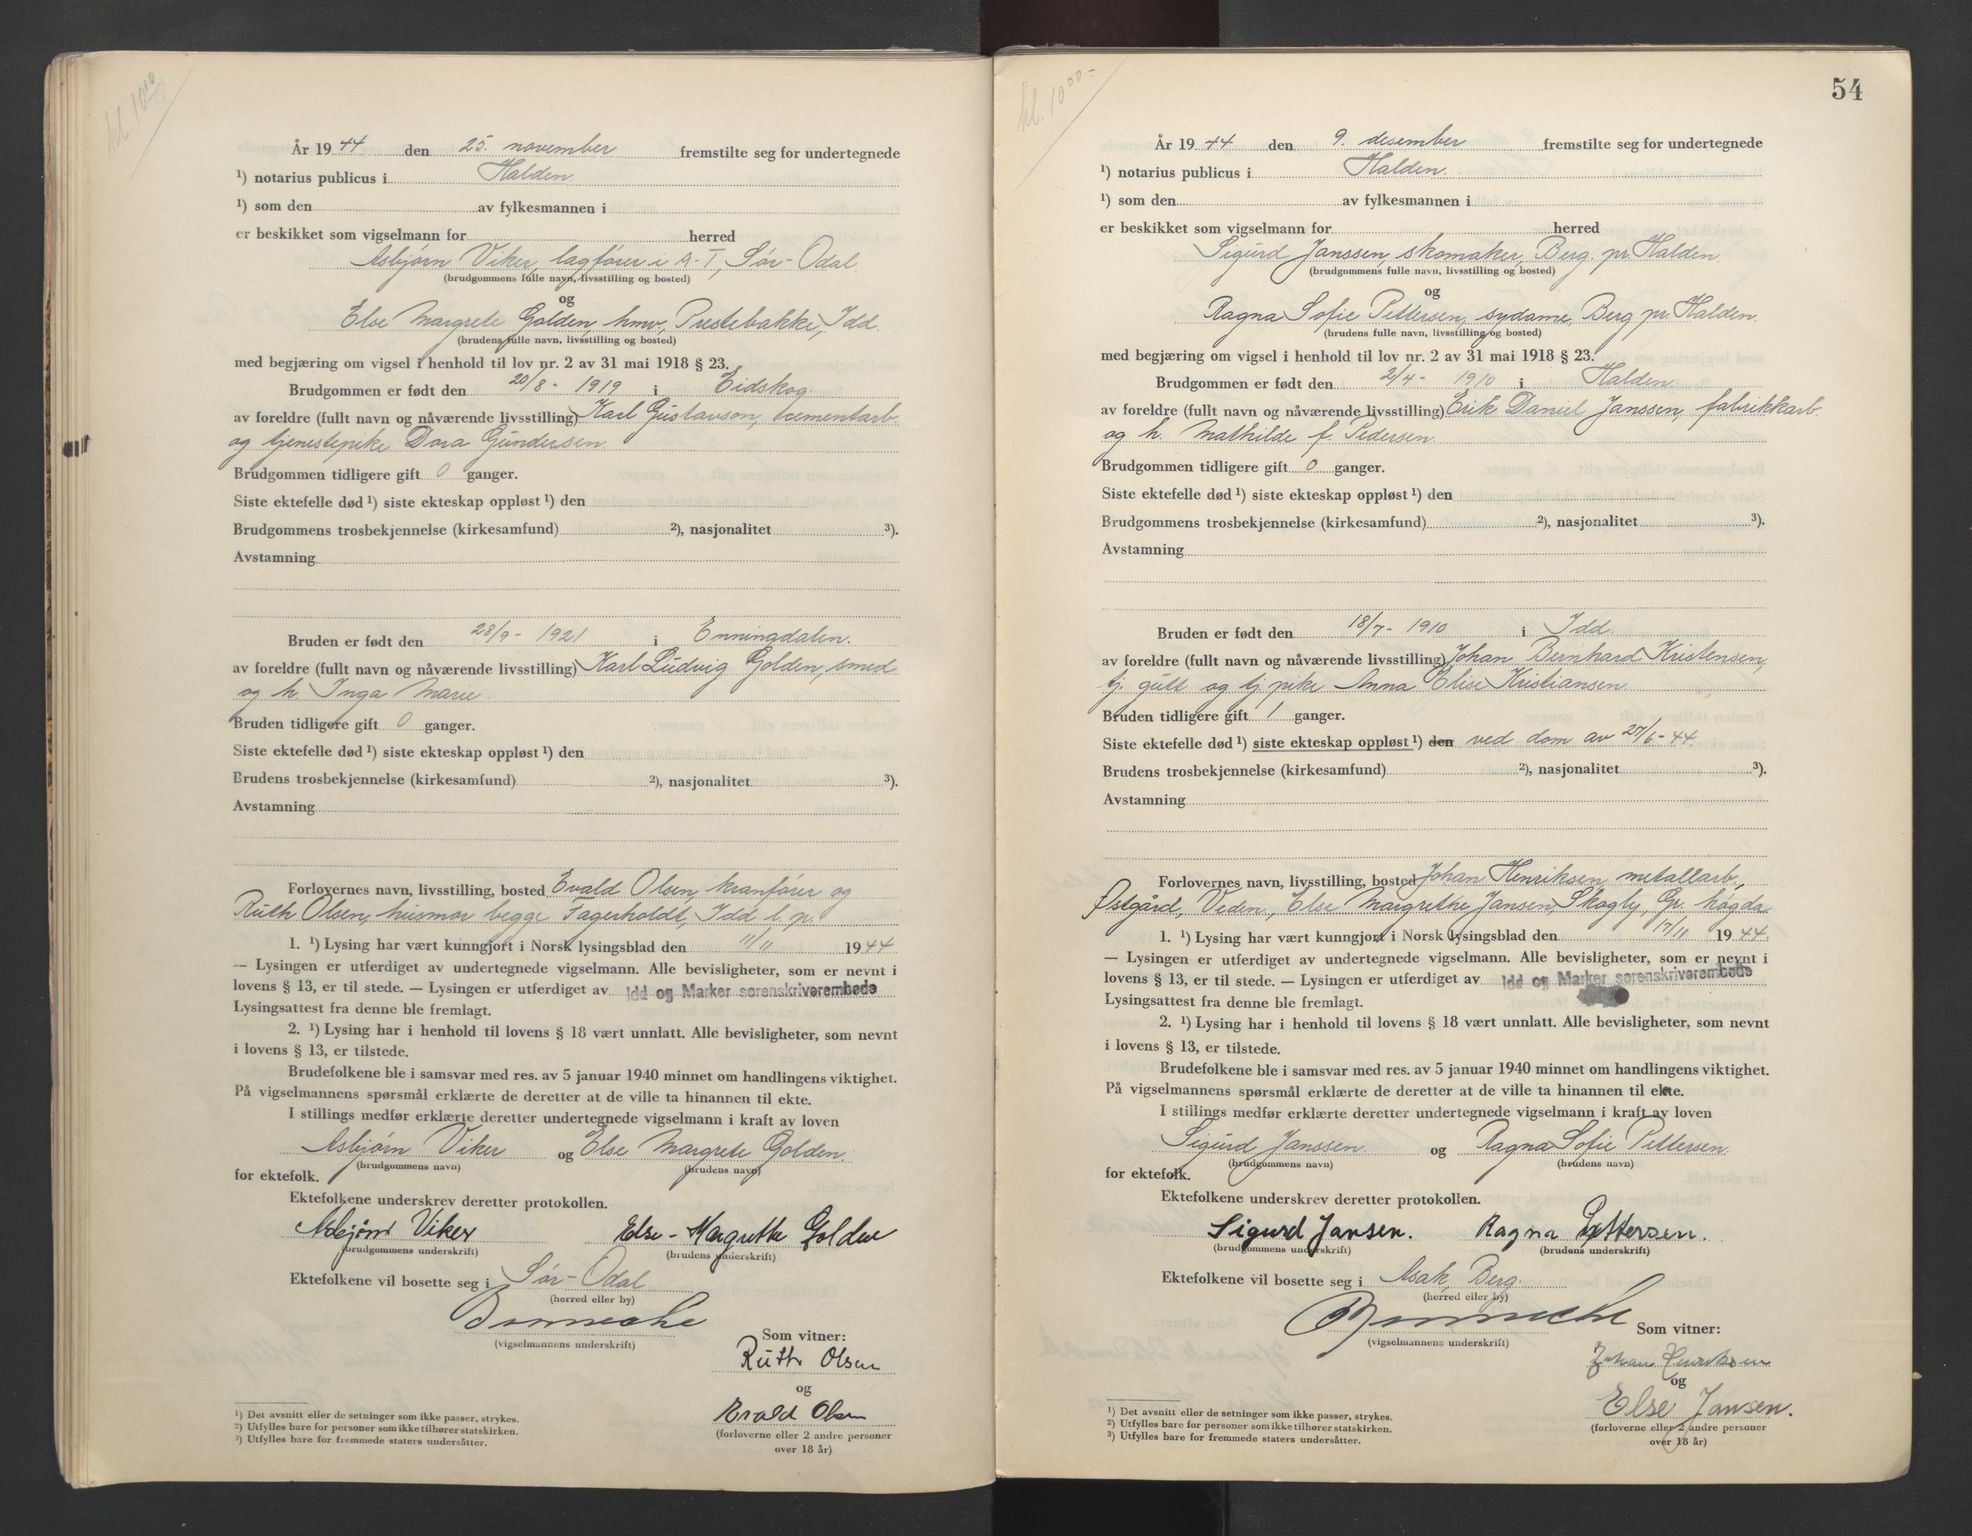 kl. 10⁰⁰
År 1944 den 25. november fremstilte seg for undertegnede
¹) notarius publicus i Halden.
¹) som den av fylkesmannen i
er beskikket som vigselmann for herred
Asbjørn Viker, lagfører i A-T, Sør-Odal
(brudgommens fulle navn, livsstilling og bosted)
og
Else Margrete Golden, hmv., Prestebakke, Idd.
(brudens fulle navn, livsstilling og bosted)
med begjæring om vigsel i henhold til lov nr. 2 av 31 mai 1918 § 23.
Brudgommen er født den 20/8 - 1919 i Eidskog.
av foreldre (fullt navn og nåværende livsstilling) Karl Gustavson, cementarb.
og tjenestepike Dora Gundersen
Brudgommen tidligere gift 0 ganger.
Siste ektefelle død ¹) siste ekteskap oppløst ¹) den
Brudgommens trosbekjennelse (kirkesamfund) ²), nasjonalitet ³).
Avstamning
Bruden er født den 28/9 - 1921 i Enningdalen.
av foreldre (fullt navn og nåværende livsstilling) Karl Ludvig Golden, smed
og h. Inga Marie.
Bruden tidligere gift 0 ganger.
Siste ektefelle død ¹) siste ekteskap oppløst ¹) den
Brudens trosbekjennelse (kirkesamfund) ²), nasjonalitet ³).
Avstamning
Forlovernes navn, livsstilling, bosted Evald Olsen, kranfører og
Ruth Olsen, husmor begge Fagerholdt, Idd l. p.
1. ¹) Lysing har vært kunngjort i Norsk lysingsblad den 11/11 1944
— Lysingen er utferdiget av undertegnede vigselmann. Alle bevisligheter, som er nevnt i
lovens § 13, er til stede. — Lysingen er utferdiget av Idd og Marker sorenskriverembede
Lysingsattest fra denne ble fremlagt.
2. ¹) Lysing har i henhold til lovens § 18 vært unnlatt. Alle bevisligheter, som nevnt
i lovens § 13, er tilstede.
Brudefolkene ble i samsvar med res. av 5 januar 1940 minnet om handlingens viktighet.
På vigselmannens spørsmål erklærte de deretter at de ville ta hinannen til ekte.
I stillings medfør erklærte deretter undertegnede vigselmann i kraft av loven
Asbjørn Viker og Else Margrete Golden
(brudgommens navn) (brudens navn)
for ektefolk.
Ektefolkene underskrev deretter protokollen.
Asbjørn Viker Else-Margrethe Golden
(brudgommens underskrift) (brudens underskrift)
Ektefolkene vil bosette seg i Sør-Odal
(herred eller by)
(vigselmannens underskrift)
Som vitner:
Ruth Olsen
og
Evald Olsen
(forloverne eller 2 andre personer
over 18 år)
¹) Det avsnitt eller de setninger som ikke passer, strykes.
²) Utfylles bare for personer som ikke tilhører statskirken.
³) Utfylles bare for fremmede staters undersåtter.
54
kl. 10⁰⁰-
År 1944 den 9. desember fremstilte seg for undertegnede
¹) notarius publicus i Halden.
¹) som den av fylkesmannen i
er beskikket som vigselmann for herred
Sigurd Janssen, skomaker, Berg. pr. Halden
(brudgommens fulle navn, livsstilling og bosted)
og
Ragna Sofie Pettersen, sydame, Berg pr. Halden.
(brudens fulle navn, livsstilling og bosted)
med begjæring om vigsel i henhold til lov nr. 2 av 31 mai 1918 § 23.
Brudgommen er født den 2/4 - 1910 i Halden.
av foreldre (fullt navn og nåværende livsstilling) Erik Daniel Janssen, fabrikkarb.
og h. Mathilde f. Pedersen
Brudgommen tidligere gift 0 ganger.
Siste ektefelle død ¹) siste ekteskap oppløst ¹) den
Brudgommens trosbekjennelse (kirkesamfund) ²), nasjonalitet ³).
Avstamning
Bruden er født den 18/7 - 1910 i Idd.
av foreldre (fullt navn og nåværende livsstilling) Johan Bernhard Kristensen,
tj. gutt og tj. pike Anna Elise Kristiansen
Bruden tidligere gift 1 ganger.
Siste ektefelle død ¹) siste ekteskap oppløst ¹) den ved dom av 27/6-44.
Brudens trosbekjennelse (kirkesamfund) ²), nasjonalitet ³).
Avstamning
Forlovernes navn, livsstilling, bosted Johan Henriksen, metallarb.,
Østgård, Veden, Else Margrethe Jansen, Skogly, Gr. høgda
1. ¹) Lysing har vært kunngjort i Norsk lysingsblad den 17/11 1944.
— Lysingen er utferdiget av undertegnede vigselmann. Alle bevisligheter, som er nevnt i
lovens § 13, er til stede. — Lysingen er utferdiget av Idd og Marker sorenskriverembede
Lysingsattest fra denne ble fremlagt.
2. ¹) Lysing har i henhold til lovens § 18 vært unnlatt. Alle bevisligheter, som nevnt
i lovens § 13, er tilstede.
Brudefolkene ble i samsvar med res. av 5 januar 1940 minnet om handlingens viktighet.
På vigselmannens spørsmål erklærte de deretter at de ville ta hinannen til ekte.
I stillings medfør erklærte deretter undertegnede vigselmann i kraft av loven
Sigurd Janssen og Ragna Sofie Pettersen
(brudgommens navn) (brudens navn)
for ektefolk.
Ektefolkene underskrev deretter protokollen.
Sigurd Jansen. Ragna Pettersen.
(brudgommens underskrift) (brudens underskrift)
Ektefolkene vil bosette seg i Asak, Berg.
(herred eller by)
(vigselmannens underskrift)
Som vitner:
Johan Henriksen
og
Else Jansen.
(forloverne eller 2 andre personer
over 18 år)
¹) Det avsnitt eller de setninger som ikke passer, strykes.
²) Utfylles bare for personer som ikke tilhører statskirken.
³) Utfylles bare for fremmede staters undersåtter.